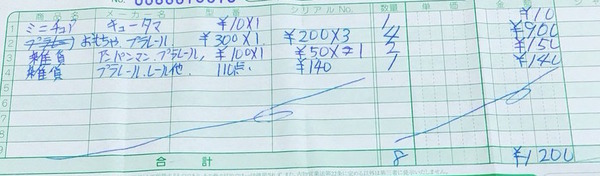 商品名 メーカー名 シリアルNo. 数量 単価 金額
1 ミニチュア キュータマ ¥10×1 1 ¥10
2 おもちゃ プラレール ¥300×1 ¥200×3 4 ¥900
3 雑貨 アンパンマン、プラレール、¥100×1 ¥50×1 2 ¥150
4 雑貨 プラレール レール他 110点 ¥140 1 ¥140
5
6
7
8
9
合計 8 ¥1200